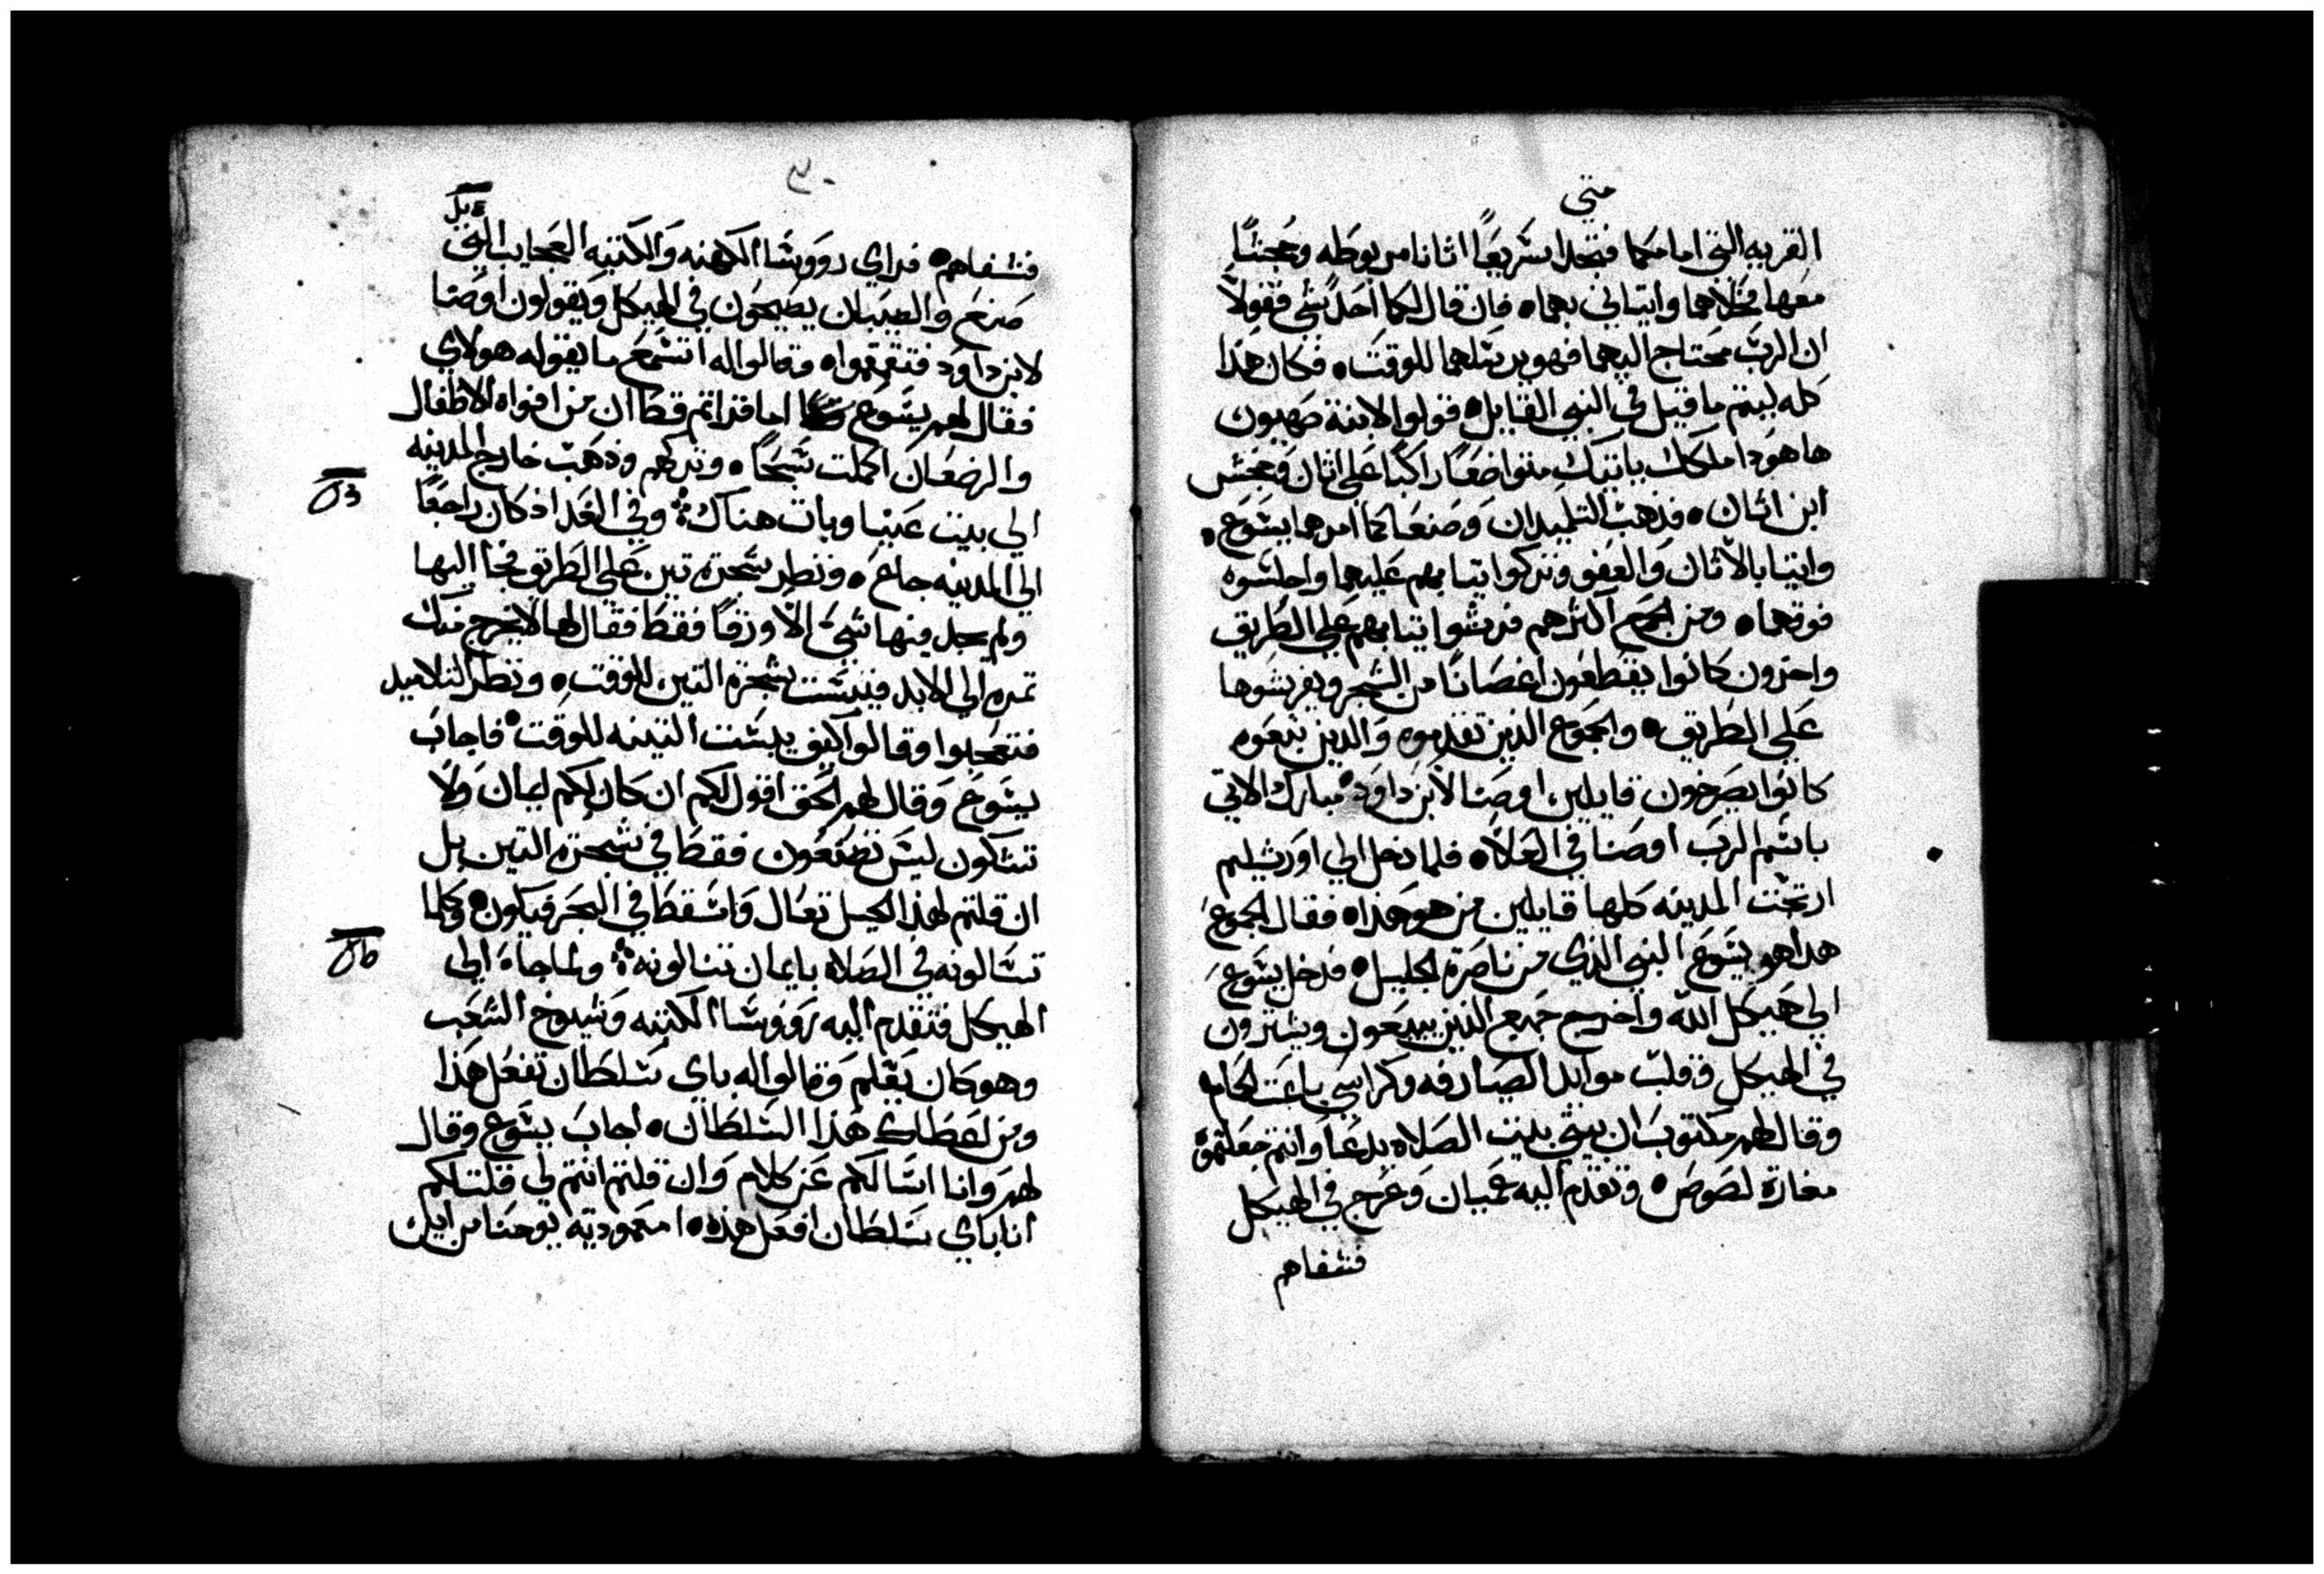 متي
القريه التي امامكما فتجدا سَريعًا اثانا مربوطه وجحشًا
معها فحلاهما واتياني بهما • فان قال لكما احدًا شي فقولا
ان الربّ محتاج اليهما فهو يرسَلهما للوقت • فكان هذا
كله ليتم ما قيل في النبي القايل • قولوا لابنة صهيون
ها هودا ملكك ياتيك متواضعًا راكبًا علي اثان وجحش
ابن اثان • فذهب التلميدان وصَنعَا كما امرهما يسَوع •
واتيا بالاثان والعفو وتركوا تيابهم عَليهما واجلسَوه
فوقهما • ومن الجمع اكثرهم فرشوا تيابهم علي الطريق
واخرون كانوا يقطعون اغصَانًا من الشجر ويفرشوها
عَلي الطريق • والجموع الذين تقدموه والدين تبعوه
كانوا يصَرخون قايلين اوصَنا لابن داود • مبارك الاتي
باسَم الربّ اوصَنا في العَلاه • فلما دخل الي اورشليم
ارتجت المدينه كلها قايلين من هو هذا • فقال الجموع
هدا هو يسَوع النبي الذي من ناصَرة الجليل • فدخل يسَوع
الي هيكل الله واخرج جميع الذين يبيعون ويشترون
في الهيكل وقلب موايد الصَيارفه وكراسَي باعَت الحمام
وقال لهم مكتوبَ ان بيتي بيت الصَلاه يدعَا وانتم جعلتموه
مغارة لصَوص • وتقدم اليه عميان وعرج في الهيكل
فشفاهم
٣٠
فشفاهم • فراي رووسَا الكهنه والكتبه العجايب التي
صَنع والصَبيان يصَيحون في الهيكل ويقولون اوصَنا
لابن داود فتقمقموا • وقالوا له اتسَمع ما يقوله هولاي
فقال لهم يسَوع اما قراتم قط ان من افواه الاطفال
والرضعَان اكملت سَبحًا • وتركهم وذهب خارج المدينه
الي بيت عَنيا وبات هناك ⁘ وفي الغد اذ كان راجعًا
الي المدينه جاع • ونظر شجرة تين علي الطريق فجا اليها
ولم يجد فيها شي الا ورقًا فقط فقال لها لا يخرج منك
تمره الي الابد فيبسَت شجرة التين للوقت • ونظر التلاميد
فتعجبوا وقالوا كيف يبسَت التينه للوقت • فاجابَ
يسَوع وقال لهم الحق اقول لكم ان كان لكم ايمان ولا
تشكون ليسَ تصَنعون فقط في شجرة التين بل
ان قلتم لهذا الجبل تعال واسَقط في البحر فيكون • وكلما
تسَالونه في الصَلاه بايمان تنالونه ⁘ ولما جاه الي
الهيكل فتقدم اليه رووسَا الكتبه وشيوخ الشعب
وهو كان يعَلم وقالوا له باي سَلطان تفعل هذا
ومن اعطاك هذا السَلطان • اجابَ يسَوع وقال
لهم وانا اسَالكم عَن كلام وان قلتم انتم لي قلت لكم
انا باي سَلطان افعل هذه • امعموديه يوحنا من اين